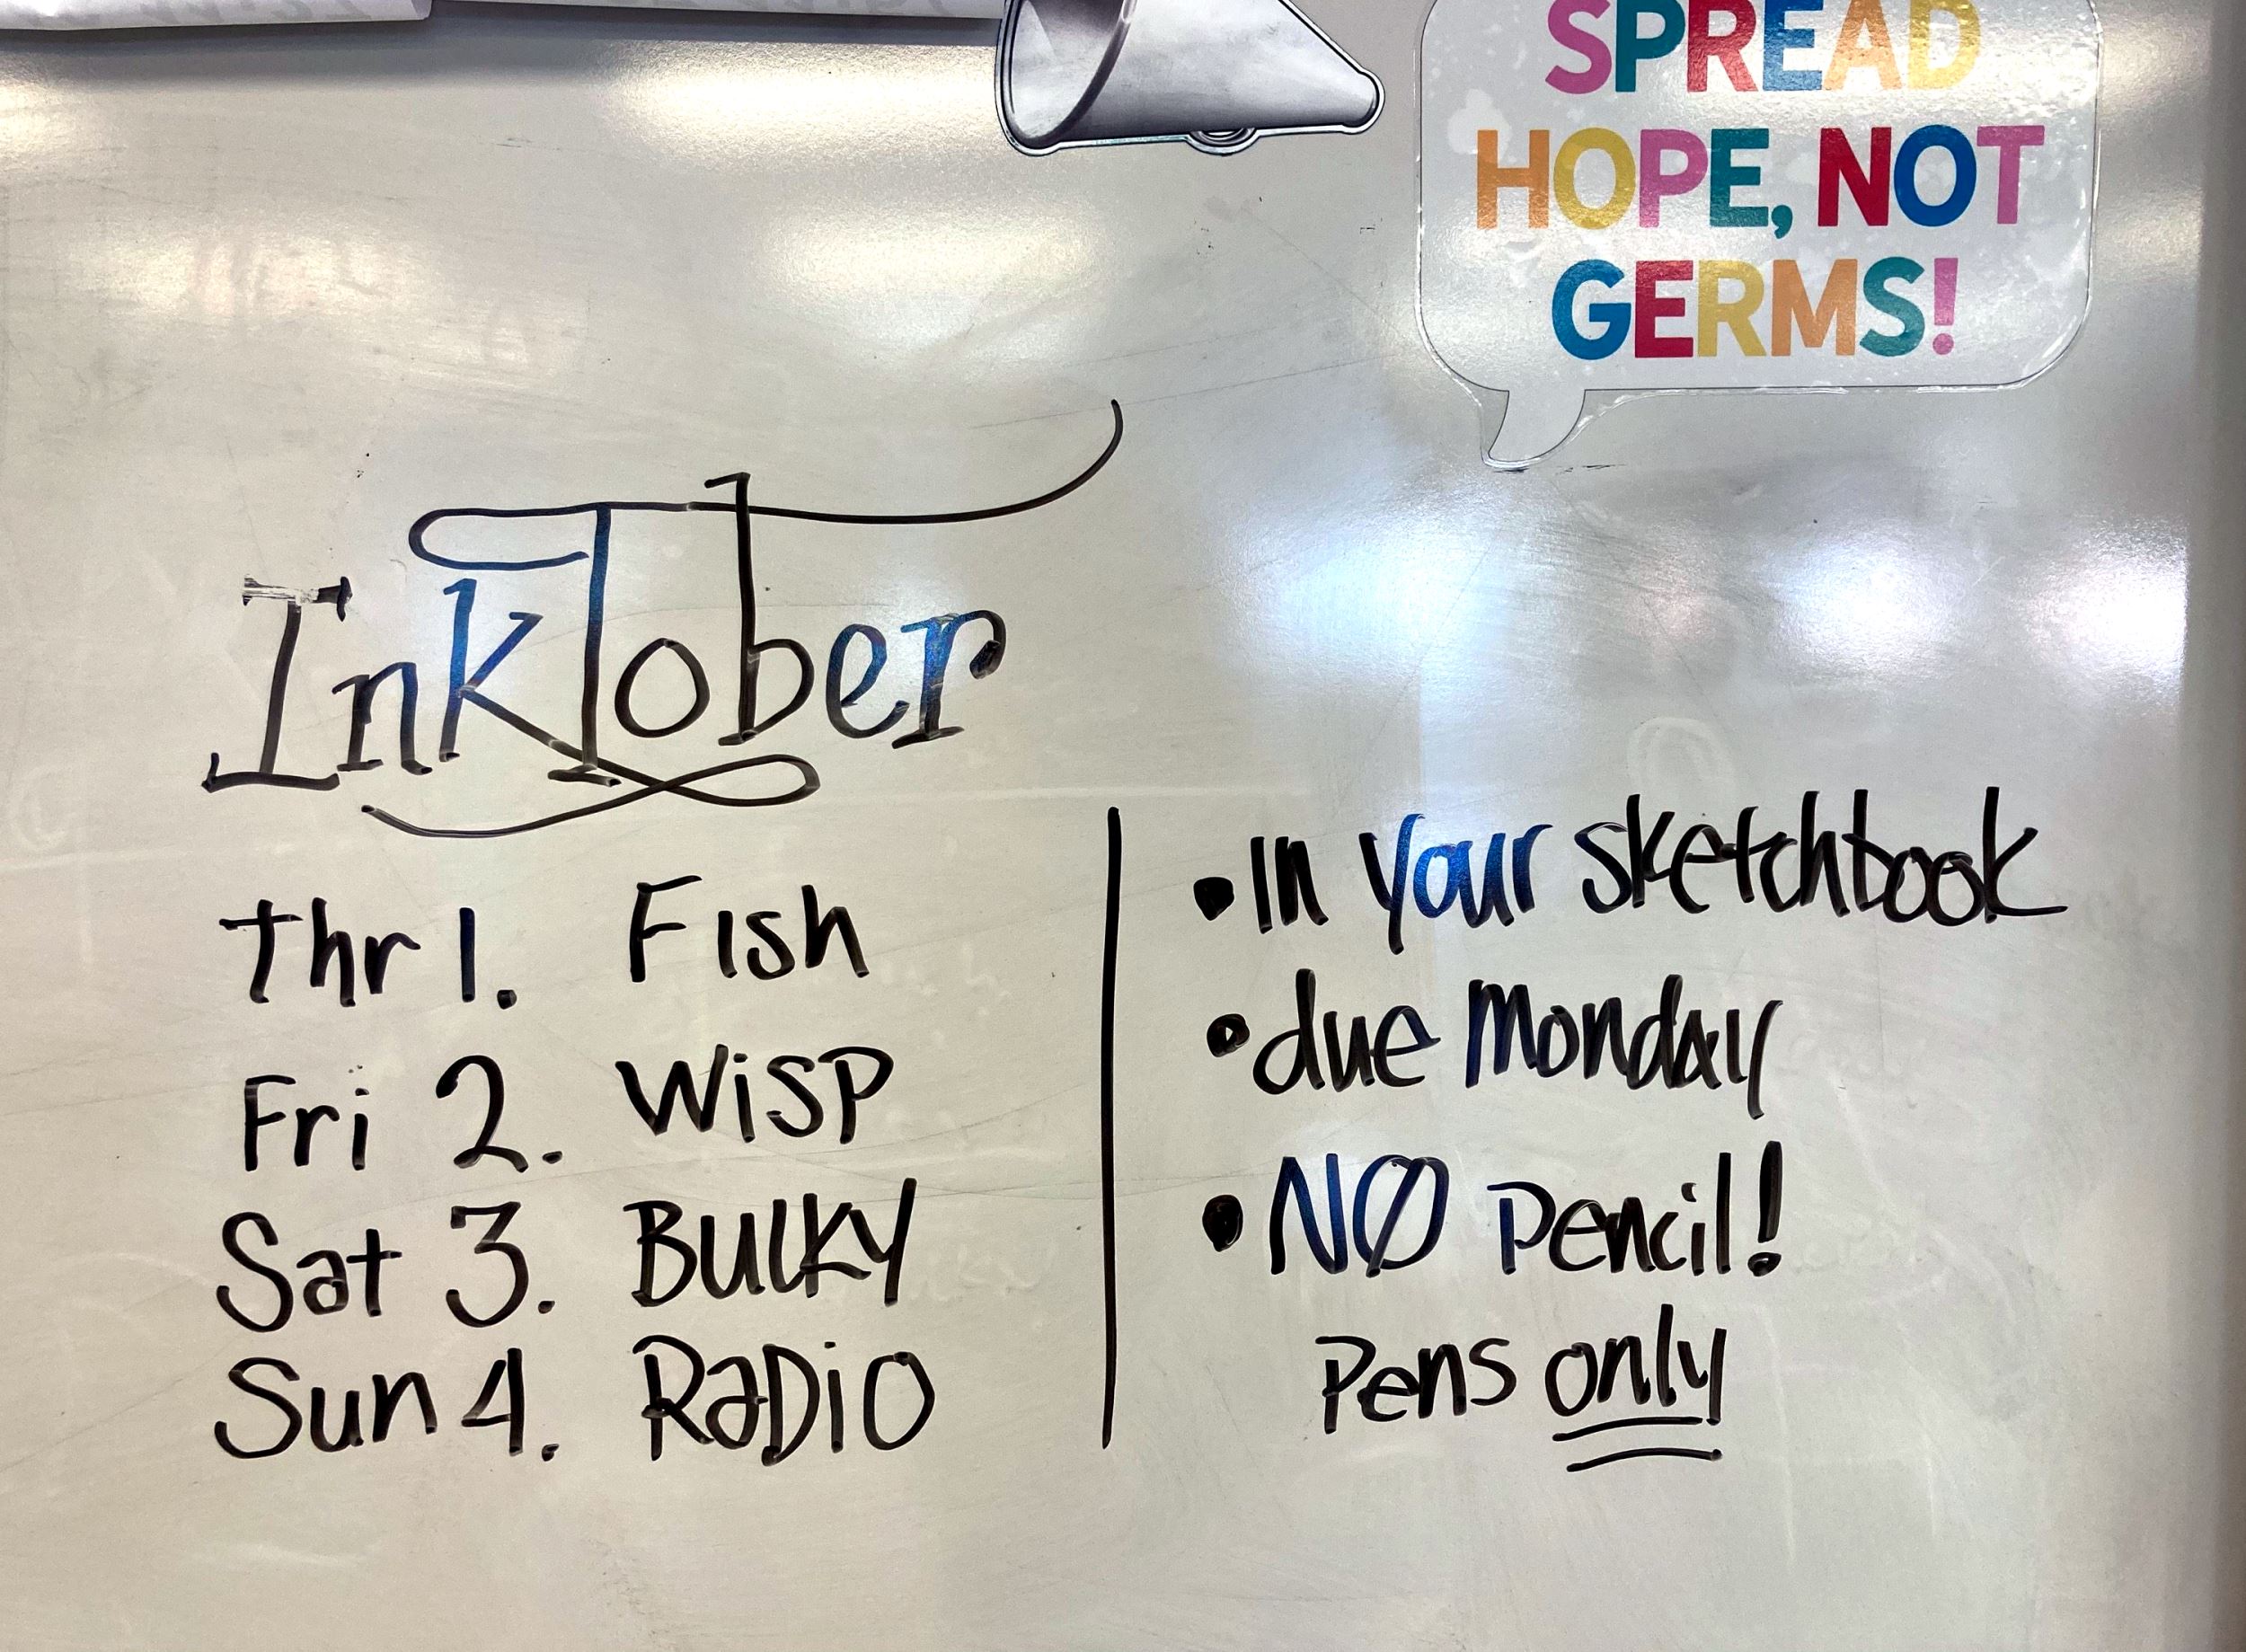 SPREAD
HOPE, NOT
GERMS!
InkTober
Thr 1. Fish
Fri 2. WiSP
Sat 3. BULKY
Sun 4. RaDiO
• In your sketchbook
• due Monday
• NO Pencil!
Pens only